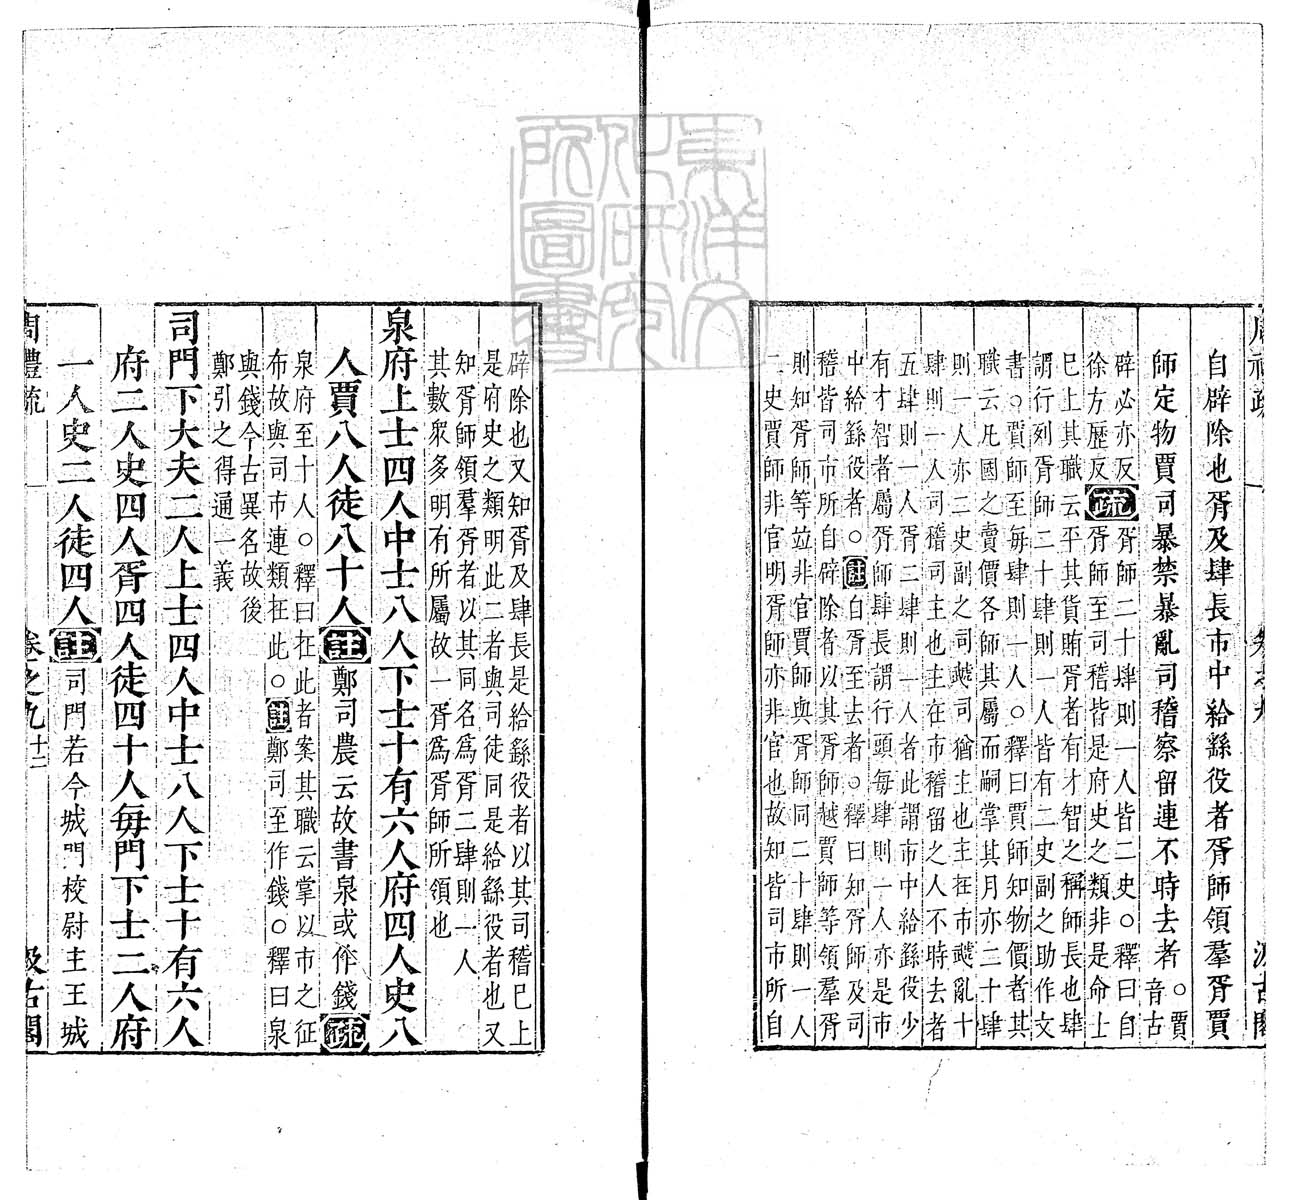 自辟除也胥及肆長市中給繇役者胥師領羣胥賈
師定物賈司暴禁暴亂司稽察留連不時去者○賈音古
辟必亦反
徐方歷反疏胥師二十肆則一人皆二史○釋曰自
胥師至司稽皆是府史之類非是命士
巳上其職云平其貨賄胥者有才智之稱師長也肆
謂行列胥師二十肆則一人皆有二史副之助作文
書○賈師至每肆則一人○釋曰賈師知物價者其
職云凡國之賣價各師其屬而嗣掌其月亦二十肆
則一人亦二史副之司虣司猶主也主在市虣亂十
肆則一人司稽司主也主在市稽留之人不時去者
五肆則一人胥二肆則一人者此謂市中給繇役少
有才智者屬胥師肆長謂行頭每肆則一人亦是市
中給繇役者○註自胥至去者○釋曰知胥師及司
稽皆司市所自辟除者以其胥師越賈師等領羣胥
則知胥師等竝非官賈師與胥師同二十肆則一人
二史賈師非官明胥師亦非官也故知皆司市所自
辟除也又知胥及肆長是給繇役者以其司稽巳上
是府史之類明此二者與司徒同是給繇役者也又
知胥師領羣胥者以其同名爲胥二肆則一人
其數衆多明有所屬故一胥爲胥師所領也
泉府上士四人中士八人下士十有六人府四人史八
人賈八人徒八十人註鄭司農云故書泉或作錢疏
泉府至十人○釋曰在此者案其職云掌以市之征
布故與司市連類在此○註鄭司至作錢○釋曰泉
與錢今古異名故後
鄭引之得通一義
司門下大夫二人上士四人中士八人下士十有六人
府二人史四人胥四人徒四十人每門下士二人府
一人史二人徒四人註司門若今城門校尉主王城
周禮疏 卷之九 十二 汲古閣